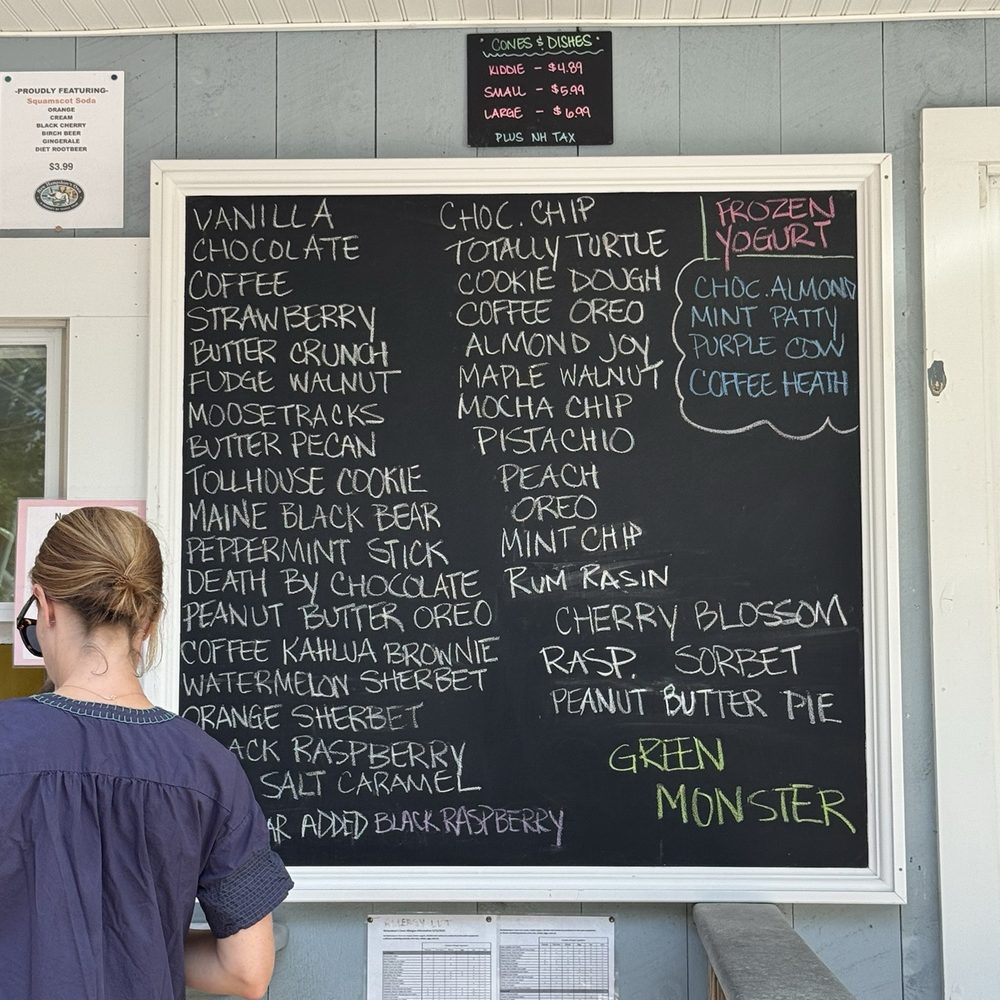 -PROUDLY FEATURING-
Squamscot Soda
ORANGE
CREAM
BLACK CHERRY
BIRCH BEER
GINGERALE
DIET ROOTBEER
$3.99
CONES & DISHES
KIDDIE - $4.89
SMALL - $5.99
LARGE - $6.99
PLUS NH TAX
VANILLA
CHOCOLATE
COFFEE
STRAWBERRY
BUTTER CRUNCH
FUDGE WALNUT
MOOSETRACKS
BUTTER PECAN
TOLLHOUSE COOKIE
MAINE BLACK BEAR
PEPPERMINT STICK
DEATH BY CHOCOLATE
PEANUT BUTTER OREO
COFFEE KAHLUA BROWNIE
WATERMELON SHERBET
ORANGE SHERBET
ACK RASPBERRY
SALT CARAMEL
AR ADDED BLACK RASPBERRY
CHOC. CHIP
TOTALLY TURTLE
COOKIE DOUGH
COFFEE OREO
ALMOND JOY
MAPLE WALNUT
MOCHA CHIP
PISTACHIO
PEACH
OREO
MINT CHIP
RUM RASIN
CHERRY BLOSSOM
RASP. SORBET
PEANUT BUTTER PIE
GREEN
MONSTER
FROZEN
YOGURT
CHOC. ALMOND
MINT PATTY
PURPLE COW
COFFEE HEATH
ALLERGY LIST